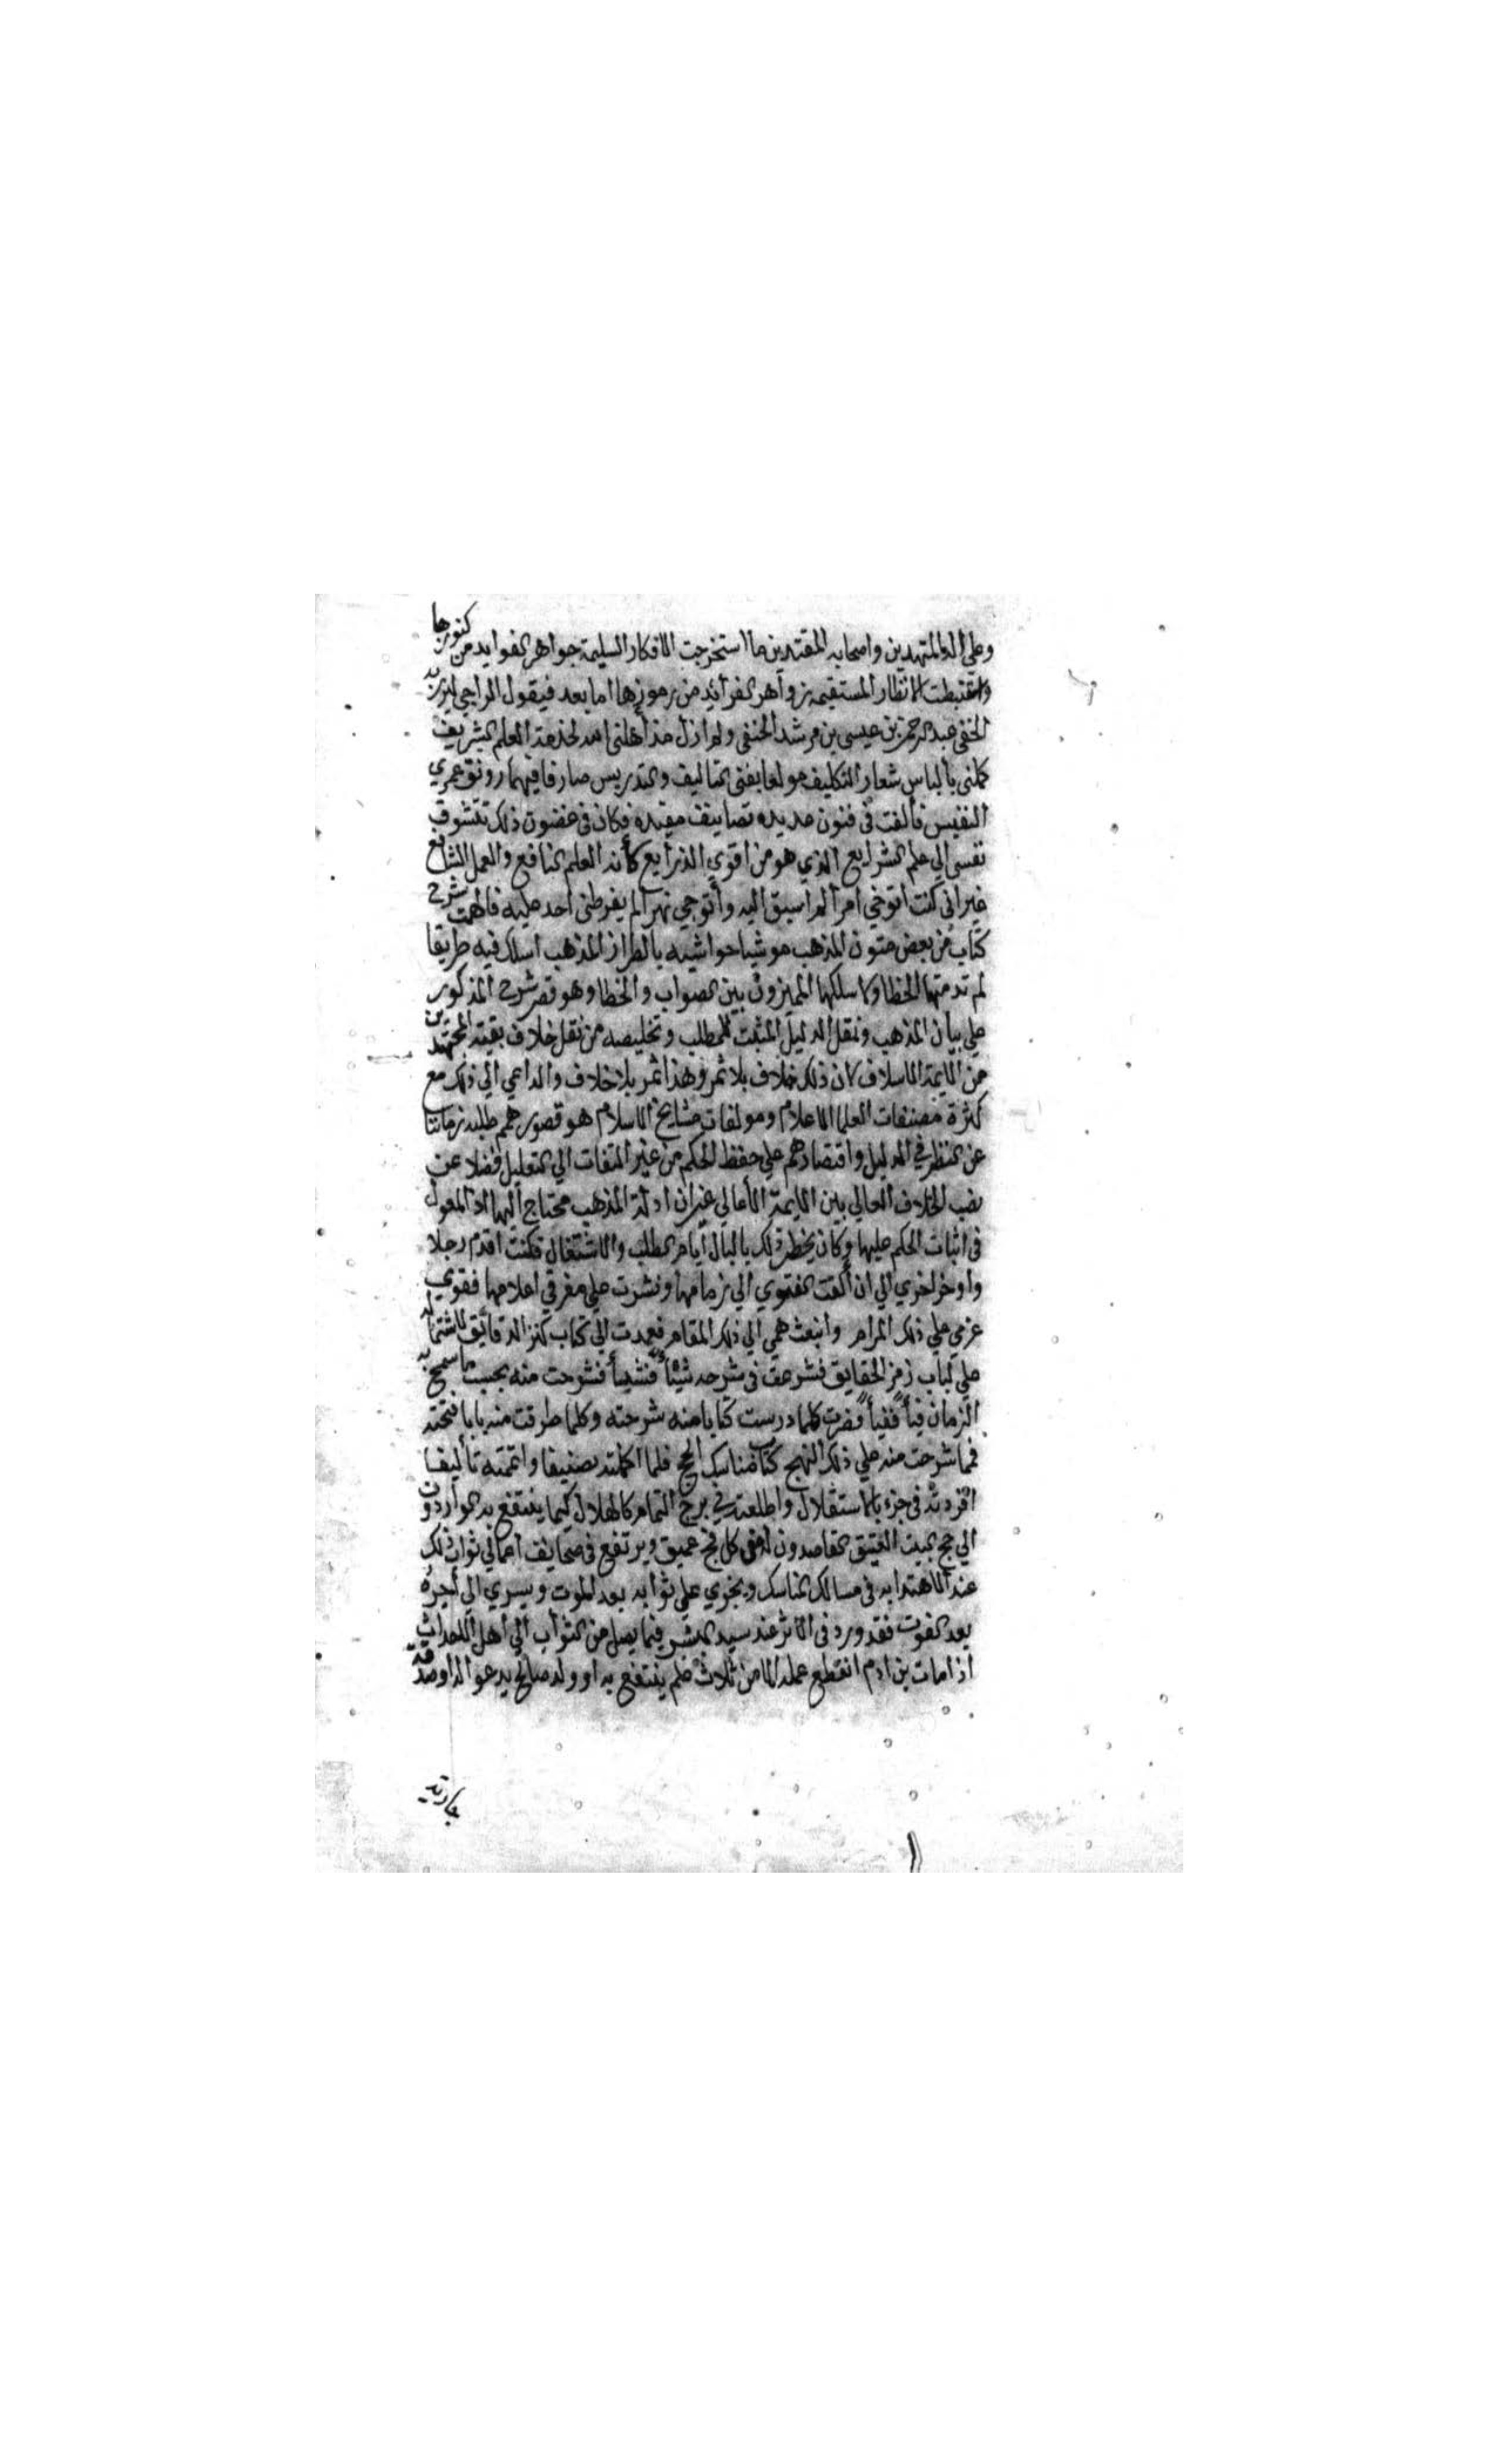 وعلي اله المتهدين واصحابه المقتدين ما استخرجت الافكار السليمة جواهر الفوايد من كنوزها
واقتبطت الانظار المستقيمه زواهر الفرائد من رموزها اما بعد فيقول الراجي لبر ربه
الخفي عبد الرحمن بن عيسى بن مرشد الحنفي ولم ازل منذ أهلني الله لخدمة العلم الشريف
كلفني بالباس شعار التكليف مولعا بفني التاليف والتدريس صارفا فيهما رونق عمري
النفيس فألفت في فنون عديده تصانيف مفيده فكان في غضون ذلك تتشوق
نفسي الي علم الشرايع الذي هو من اقوي الذرايع كأنه العلم النافع والعمل الشايع
غير اني كنت اتوخي امرا لم اسبق اليه وأتوجي نهرا لم يفرطني احد عليه فألهمت شرح
كتاب من بعض متون المذهب موشيا حواشيه بالطراز المذهب اسلك فيه طريقا
لم تدمتها الخطا ولا سلكها المميزون بين الصواب والخطا وهو قصر شرح المذكور
علي بيان المذهب ونقل الدليل المثبت للمطلب وتخليصه من نقل خلاف بقية المجتهدين
من الايمة الاسلاف لان ذلك خلاف بلا ثمر وهذا ثمر بلا خلاف والداعي الي ذلك مع
كثرة مصنفات العلما الاعلام ومولفات مشايخ الاسلام هو قصور همم طلبه زماننا
عن النظر في الدليل واقتصارهم علي حفظ الحكم من غير التفات الي التعليل فضلا عن
نصب الخلاف العالي بين الايمة الأعالي غير ان ادلة المذهب محتاج اليها اذ المعول
في اثبات الحكم عليها وكان يخطر ذلك بالبال أيام الطلب والاشتغال فكنت اقدم رجلا
واوخر اخري الي ان ألقت الفتوي الي زمامها ونشرت علي مفرقي اعلامها فقوي
عزمي علي ذلك المرام وانبعث همي الي ذلك المقام فعمدت الي كتاب كنز الدقائق لاشتماله
علي لباب رمز الحقايق فشرعت في شرحه شيئا فشيئا فشرحت منه بحسب ما سمح به
الزمان فيأ ففيأ فصرت كلما درست كتابا منه شرحته وكلما طرقت منه بابا فتحته
فما شرحت منه علي ذلك النهج كتاب مناسك الحج فلما اكملته تصنيفا واتممته تأليفا
افردته في جزء بالاستقلال واطلعته في برج التمام كالهلال كيما ينتفع به الواردون
الي حج البيت العتيق القاصدون من كل فج عميق ويرتفع في صحايف اعمالي ثواب ذلك
عند الاهتدا به في مسالك المناسك ويجزي علي ثوابه بعد الموت ويسري الي أجره
بعد الفوت فقد ورد في الاثر عند سيد البشر فيما يصل من الثواب الي أهل الاحداث
اذا مات بن ادم انقطع عمله الا من ثلاث علم ينتفع به او ولد صالح يدعو له او صدقة
جاريه